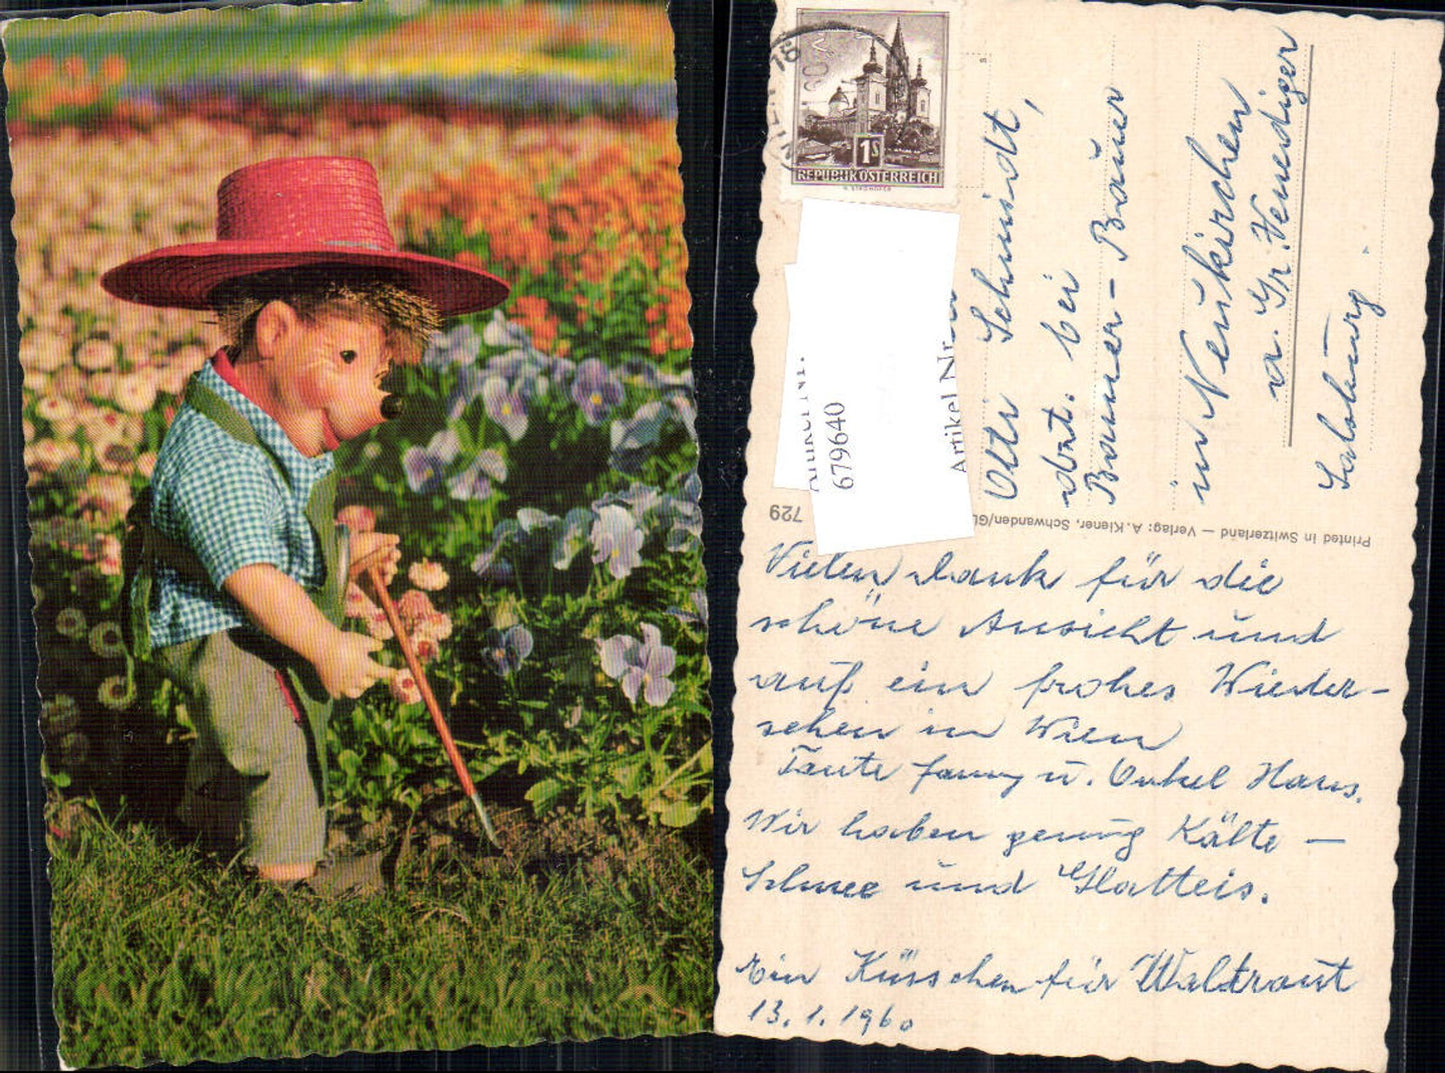 1S
REPUBLIK ÖSTERREICH
679640
Artikel Nr
Schmidt,
dzt. bei
Bammer - Bauer
in Neukirchen
a. Gr. Venediger
Salzburg.
729
Printed in Switzerland — Verlag: A. Kiener, Schwanden/GL
Vielen Dank für die
schöne Ansicht und
auf ein frohes Wieder-
sehen in Wien
Tante Fanny u. Onkel Hans.
Wir haben genug Kälte —
Schnee und Glatteis.
Ein Küsschen für Waltraut
13.1.1960